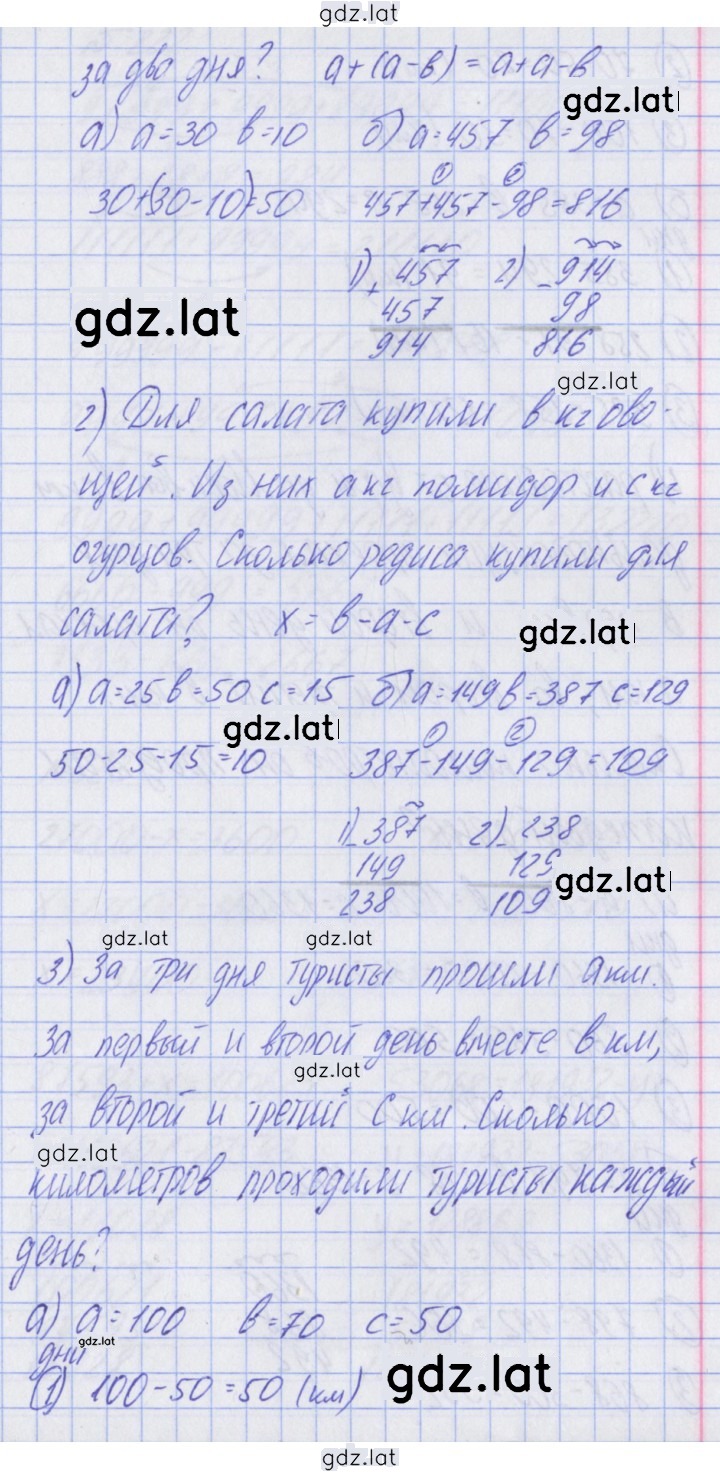 gdz.lat
за два дня? a+(a-в)=a+a-в
gdz.lat
а) a=30 в=10 б) a=457 в=98
30+(30-10)=50 457+457-98=816
1 2
1) + 457 2) - 914
457 98
914 816
gdz.lat
gdz.lat
2) Для салата купили в кг ово-
щей. Из них а кг помидор и с кг
огурцов. Сколько редиса купили для
салата? x=в-a-c
gdz.lat
а) a=25 в=50 c=15 б) a=149 в=387 c=129
gdz.lat
50-25-15=10 387-149-129=109
1 2
1) - 387 2) - 238
149 129
238 109
gdz.lat
gdz.lat gdz.lat
3) За три дня туристы прошли а км.
За первый и второй день вместе в км,
gdz.lat
за второй и третий с км. Сколько
gdz.lat
километров проходили туристы каждый
день?
а) a=100 в=70 c=50
gdz.lat
дни
1) 100-50=50 (км)
gdz.lat
gdz.lat